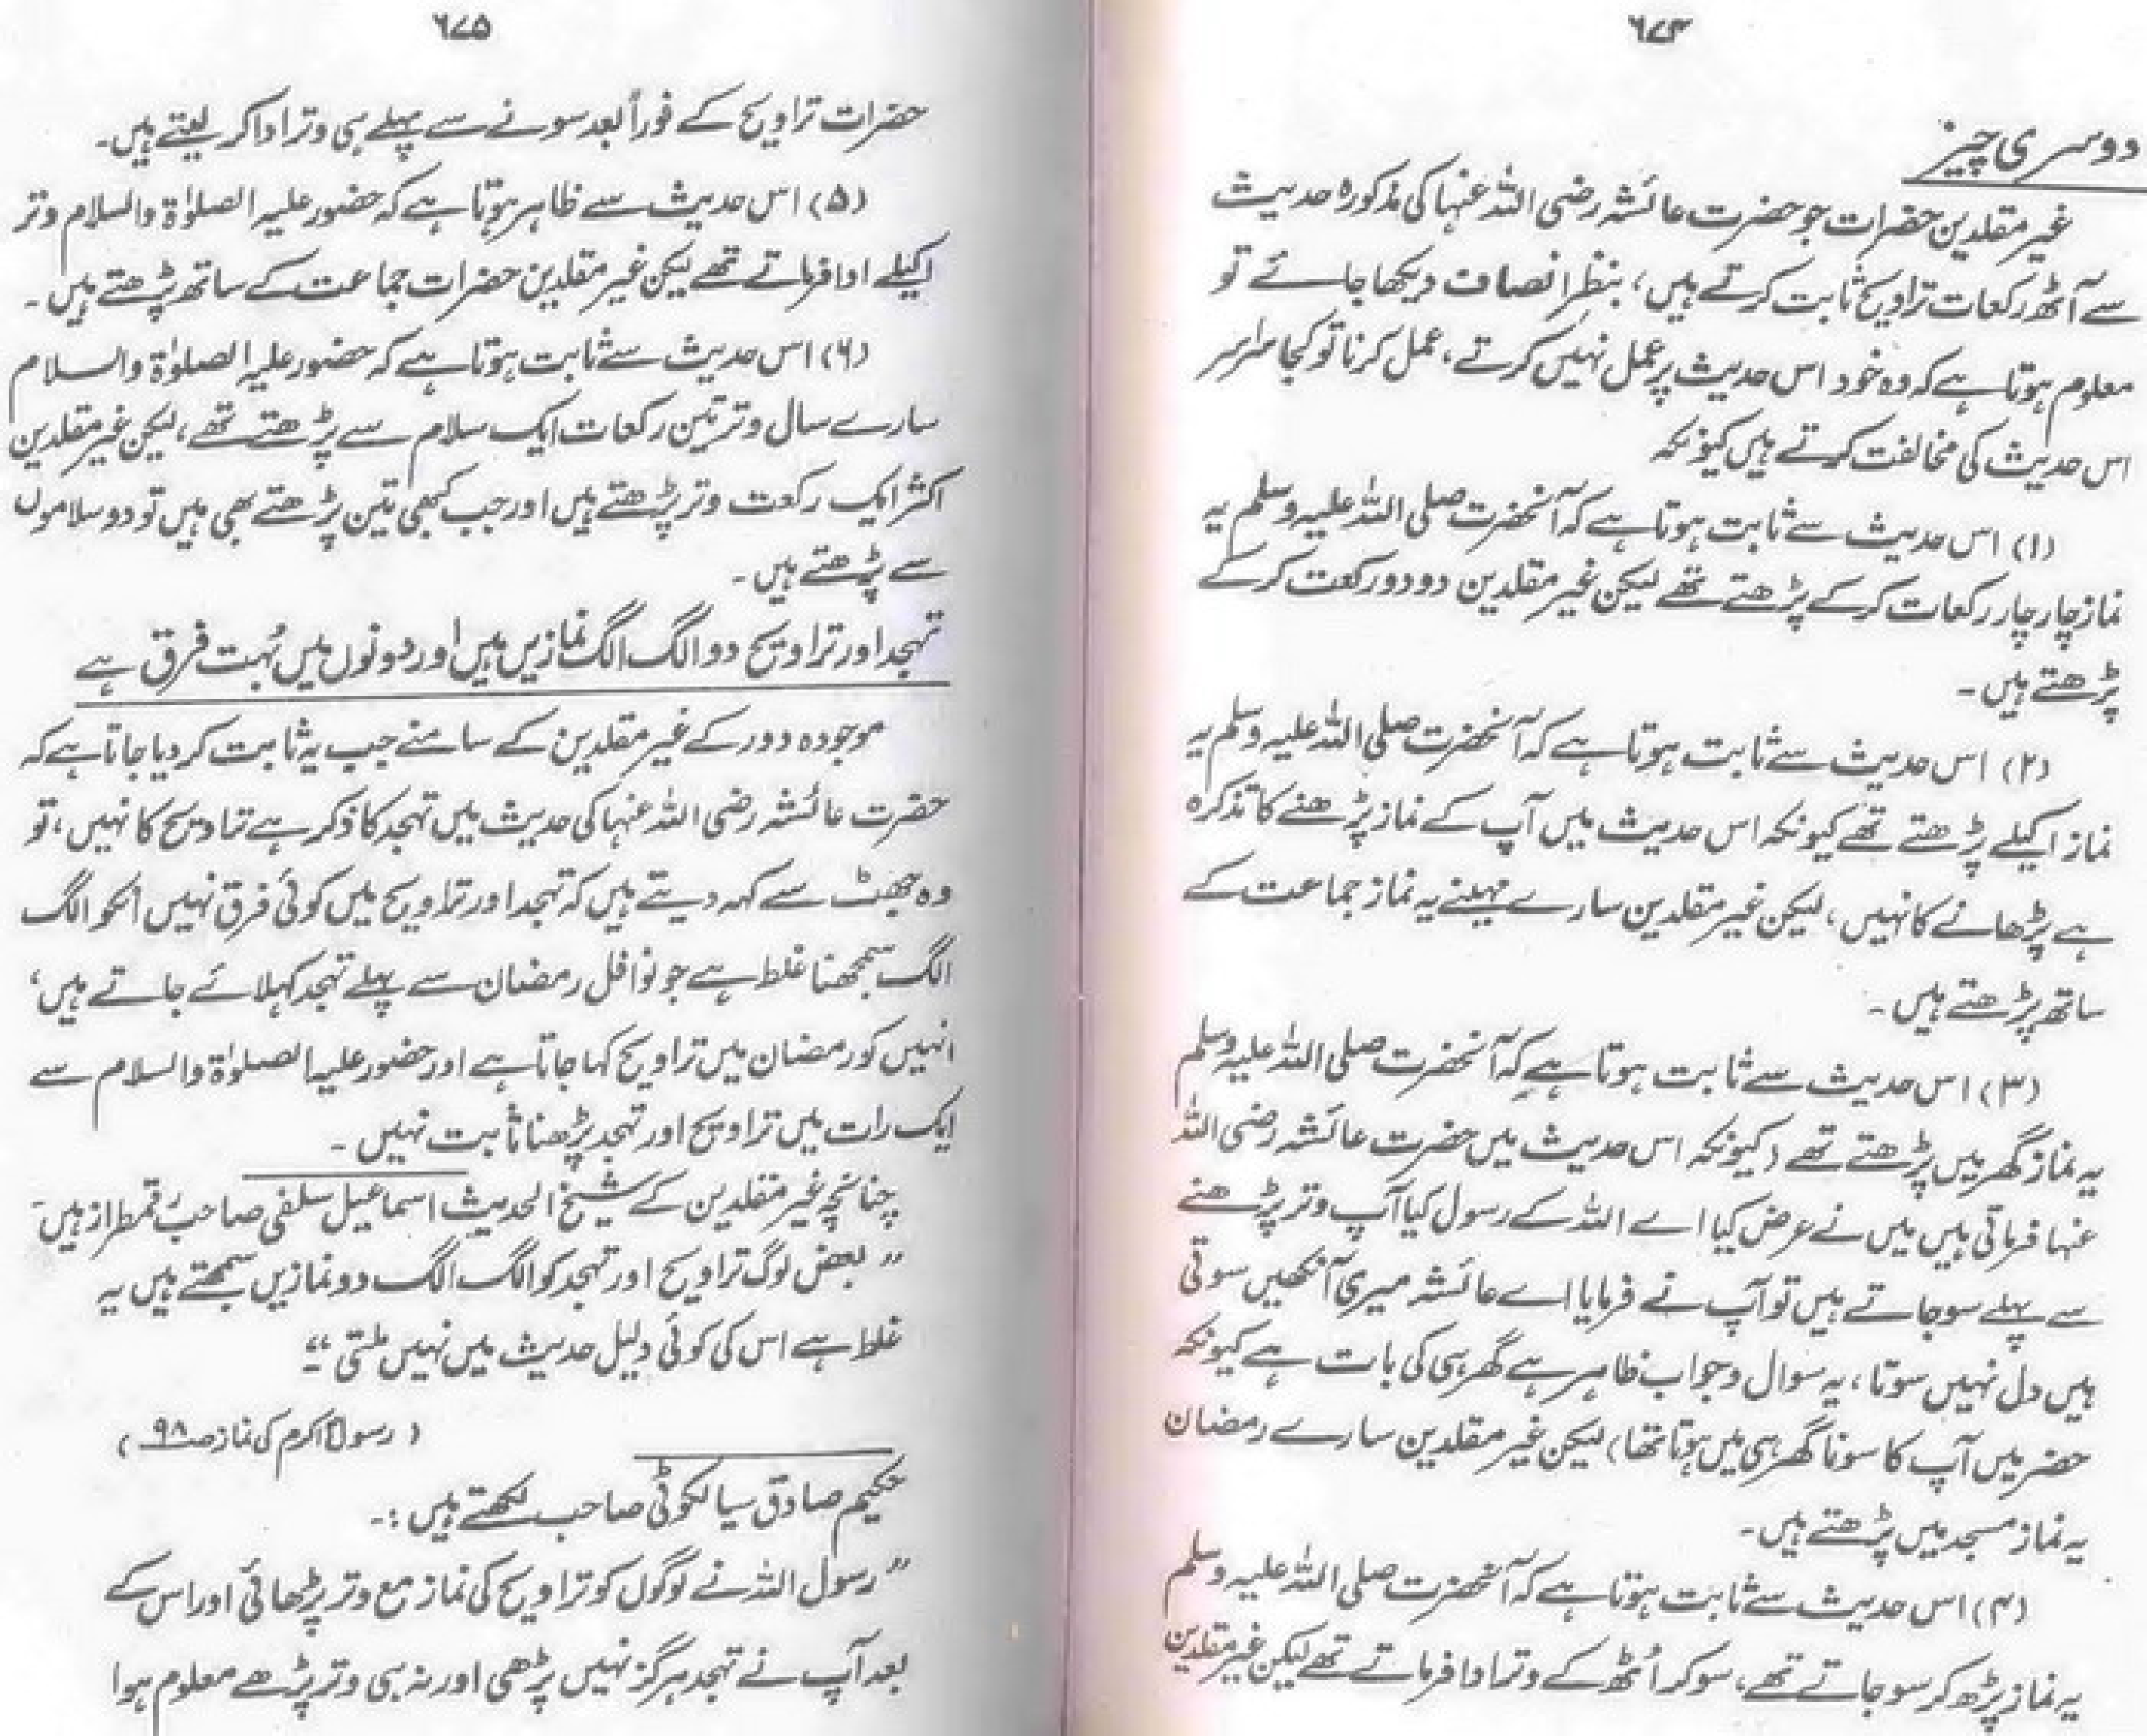 ۶۷۴
دوسری چیز
غیر مقلدین حضرات جو حضرت عائشہ رضی اللہ عنہا کی مذکورہ حدیث
سے آٹھ رکعات تراویح ثابت کرتے ہیں، بنظر انصاف دیکھا جائے تو
معلوم ہوتا ہے کہ وہ خود اس حدیث پر عمل نہیں کرتے، عمل کرنا تو کجا سراسر
اس حدیث کی مخالفت کرتے ہیں کیونکہ
(۱) اس حدیث سے ثابت ہوتا ہے کہ آنحضرت صلی اللہ علیہ وسلم یہ
نماز چار چار رکعات کرکے پڑھتے تھے لیکن غیر مقلدین دو دو رکعت کرکے
پڑھتے ہیں۔
(۲) اس حدیث سے ثابت ہوتا ہے کہ آنحضرت صلی اللہ علیہ وسلم یہ
نماز اکیلے پڑھتے تھے کیونکہ اس حدیث میں آپ کے نماز پڑھنے کا تذکرہ
ہے پڑھانے کا نہیں، لیکن غیر مقلدین سارے مہینے یہ نماز جماعت کے
ساتھ پڑھتے ہیں۔
(۳) اس حدیث سے ثابت ہوتا ہے کہ آنحضرت صلی اللہ علیہ وسلم
یہ نماز گھر میں پڑھتے تھے (کیونکہ اس حدیث میں حضرت عائشہ رضی اللہ
عنہا فرماتی ہیں میں نے عرض کیا اے اللہ کے رسول کیا آپ وتر پڑھنے
سے پہلے سو جاتے ہیں تو آپ نے فرمایا اے عائشہ میری آنکھیں سوتی
ہیں دل نہیں سوتا، یہ سوال وجواب ظاہر ہے گھر ہی کی بات ہے کیونکہ
حضر میں آپ کا سونا گھر ہی میں ہوتا تھا) لیکن غیر مقلدین سارے رمضان
یہ نماز مسجد میں پڑھتے ہیں۔
(۴) اس حدیث سے ثابت ہوتا ہے کہ آنحضرت صلی اللہ علیہ وسلم
یہ نماز پڑھ کر سو جاتے تھے، سو کر اُٹھ کے وتر ادا فرماتے تھے لیکن غیر مقلدین
۶۷۵
حضرات تراویح کے فوراً بعد سونے سے پہلے ہی وتر ادا کر لیتے ہیں۔
(۵) اس حدیث سے ظاہر ہوتا ہے کہ حضور علیہ الصلوٰۃ والسلام وتر
اکیلے ادا فرماتے تھے لیکن غیر مقلدین حضرات جماعت کے ساتھ پڑھتے ہیں۔
(۶) اس حدیث سے ثابت ہوتا ہے کہ حضور علیہ الصلوٰۃ والسلام
سارے سال وتر تین رکعات ایک سلام سے پڑھتے تھے، لیکن غیر مقلدین
اکثر ایک رکعت وتر پڑھتے ہیں اور جب کبھی تین پڑھتے بھی ہیں تو دو سلاموں
سے پڑھتے ہیں۔
تہجد اور تراویح دو الگ الگ نمازیں ہیں اور دونوں میں بُہت فرق ہے
موجودہ دور کے غیر مقلدین کے سامنے جب یہ ثابت کر دیا جاتا ہے کہ
حضرت عائشہ رضی اللہ عنہا کی حدیث میں تہجد کا ذکر ہے تراویح کا نہیں، تو
وہ جھٹ سے کہہ دیتے ہیں کہ تہجد اور تراویح میں کوئی فرق نہیں انکو الگ
الگ سمجھنا غلط ہے جو نوافل رمضان سے پہلے تہجد کہلائے جاتے ہیں،
انہیں کو رمضان میں تراویح کہا جاتا ہے اور حضور علیہ الصلوٰۃ والسلام سے
ایک رات میں تراویح اور تہجد پڑھنا ثابت نہیں۔
چنانچہ غیر مقلدین کے شیخ الحدیث اسماعیل سلفی صاحب رقمطراز ہیں۔
"بعض لوگ تراویح اور تہجد کو الگ الگ دو نمازیں سمجھتے ہیں یہ
غلط ہے اس کی کوئی دلیل حدیث میں نہیں ملتی"
(رسول اکرم کی نماز صـ ۹۸)
حکیم صادق سیالکوٹی صاحب لکھتے ہیں:۔
"رسول اللہ نے لوگوں کو تراویح کی نماز مع وتر پڑھائی اور اس کے
بعد آپ نے تہجد ہرگز نہیں پڑھی اور نہ ہی وتر پڑھے معلوم ہوا